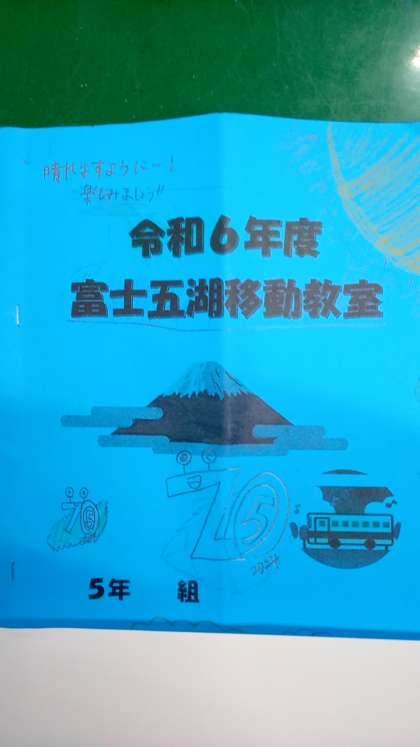 晴れますようにー!
楽しみましょう!!
令和6年度
富士五湖移動教室
70
70
2024
5年 組